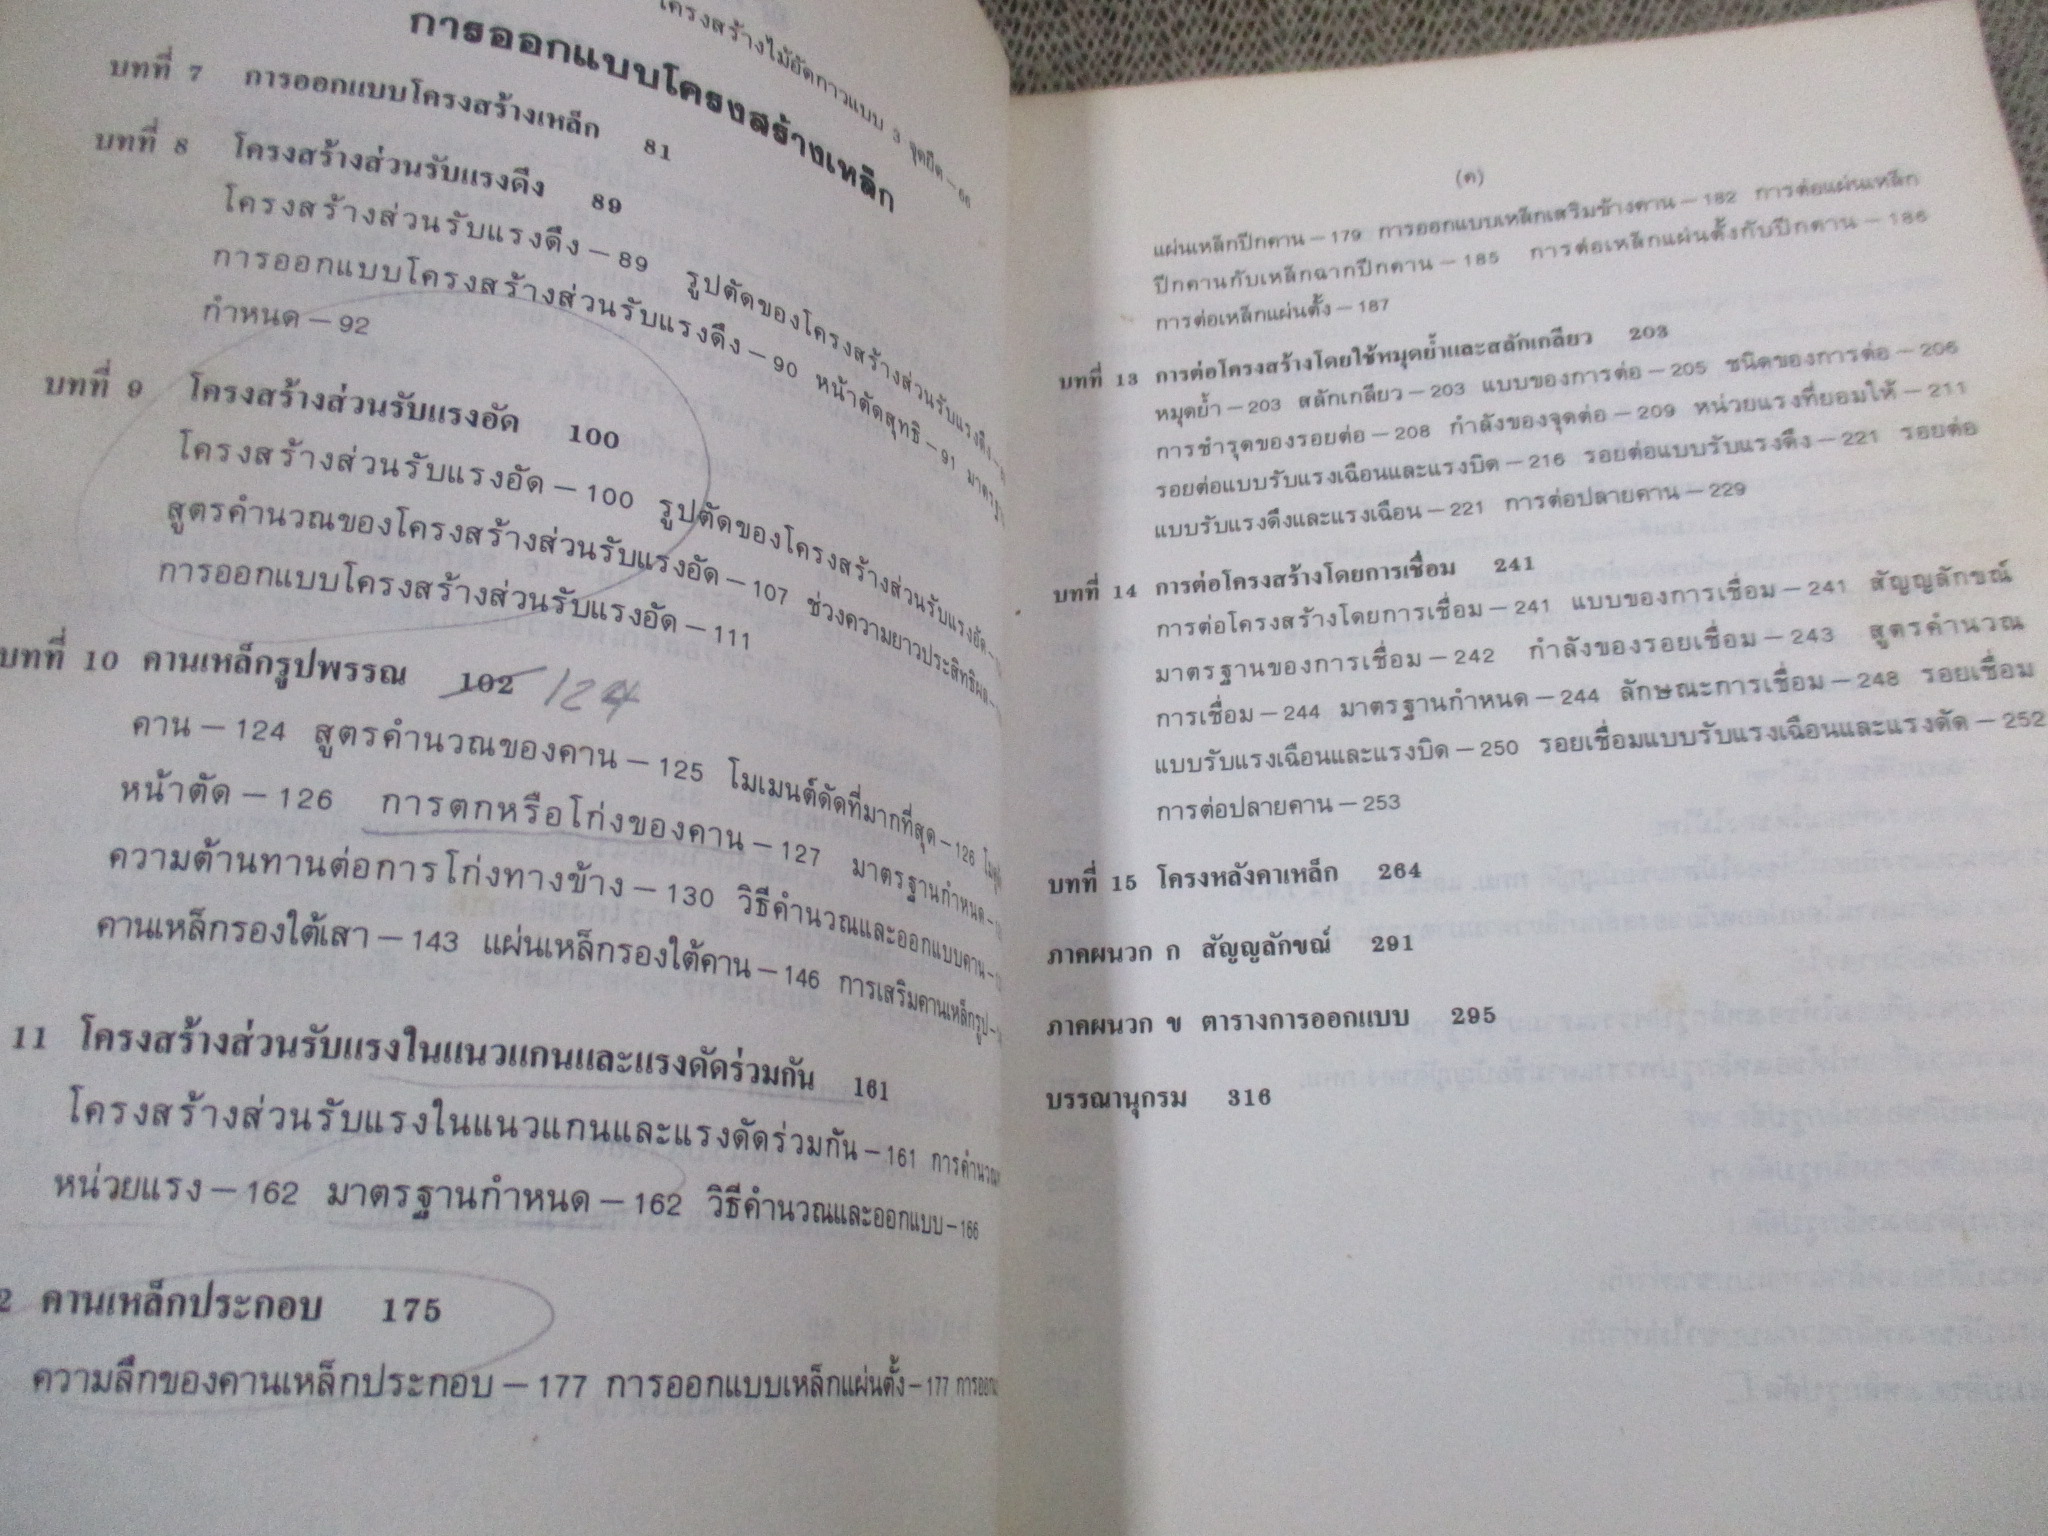 โครงสร้างไม้อัดกาวแบบ 3 จุดยึด – 66
การออกแบบโครงสร้างเหล็ก
บทที่ 7 การออกแบบโครงสร้างเหล็ก 81
บทที่ 8 โครงสร้างส่วนรับแรงดึง 89
โครงสร้างส่วนรับแรงดึง – 89 รูปตัดของโครงสร้างส่วนรับแรงดึง –
การออกแบบโครงสร้างส่วนรับแรงดึง – 90 หน้าตัดสุทธิ – 91 มาตรฐาน
กำหนด – 92
บทที่ 9 โครงสร้างส่วนรับแรงอัด 100
โครงสร้างส่วนรับแรงอัด – 100 รูปตัดของโครงสร้างส่วนรับแรงอัด –
สูตรคำนวณของโครงสร้างส่วนรับแรงอัด – 107 ช่วงความยาวประสิทธิผล –
การออกแบบโครงสร้างส่วนรับแรงอัด – 111
บทที่ 10 คานเหล็กรูปพรรณ 102 124
คาน – 124 สูตรคำนวณของคาน – 125 โมเมนต์ดัดที่มากที่สุด – 126
หน้าตัด – 126 การตกหรือโก่งของคาน – 127 มาตรฐานกำหนด –
ความต้านทานต่อการโก่งทางข้าง – 130 วิธีคำนวณและออกแบบคาน –
คานเหล็กรองใต้เสา – 143 แผ่นเหล็กรองใต้คาน – 146 การเสริมคานเหล็กรูป –
11 โครงสร้างส่วนรับแรงในแนวแกนและแรงดัดร่วมกัน 161
โครงสร้างส่วนรับแรงในแนวแกนและแรงดัดร่วมกัน – 161 การคำนวณ
หน่วยแรง – 162 มาตรฐานกำหนด – 162 วิธีคำนวณและออกแบบ – 166
2 คานเหล็กประกอบ 175
ความลึกของคานเหล็กประกอบ – 177 การออกแบบเหล็กแผ่นตั้ง – 177 การออก
(ค)
แผ่นเหล็กปีกคาน – 179 การออกแบบเหล็กเสริมข้างคาน – 182 การต่อแผ่นเหล็ก
ปีกคานกับเหล็กฉากปีกคาน – 185 การต่อเหล็กแผ่นตั้งกับปีกคาน – 186
การต่อเหล็กแผ่นตั้ง – 187
บทที่ 13 การต่อโครงสร้างโดยใช้หมุดย้ำและสลักเกลียว 203
หมุดย้ำ – 203 สลักเกลียว – 203 แบบของการต่อ – 205 ชนิดของการต่อ – 206
การชำรุดของรอยต่อ – 208 กำลังของจุดต่อ – 209 หน่วยแรงที่ยอมให้ – 211
รอยต่อแบบรับแรงเฉือนและแรงบิด – 216 รอยต่อแบบรับแรงดึง – 221 รอยต่อ
แบบรับแรงดึงและแรงเฉือน – 221 การต่อปลายคาน – 229
บทที่ 14 การต่อโครงสร้างโดยการเชื่อม 241
การต่อโครงสร้างโดยการเชื่อม – 241 แบบของการเชื่อม – 241 สัญญลักขณ์
มาตรฐานของการเชื่อม – 242 กำลังของรอยเชื่อม – 243 สูตรคำนวณ
การเชื่อม – 244 มาตรฐานกำหนด – 244 ลักษณะการเชื่อม – 248 รอยเชื่อม
แบบรับแรงเฉือนและแรงบิด – 250 รอยเชื่อมแบบรับแรงเฉือนและแรงดัด – 252
การต่อปลายคาน – 253
บทที่ 15 โครงหลังคาเหล็ก 264
ภาคผนวก ก สัญญลักขณ์ 291
ภาคผนวก ข ตารางการออกแบบ 295
บรรณานุกรม 316